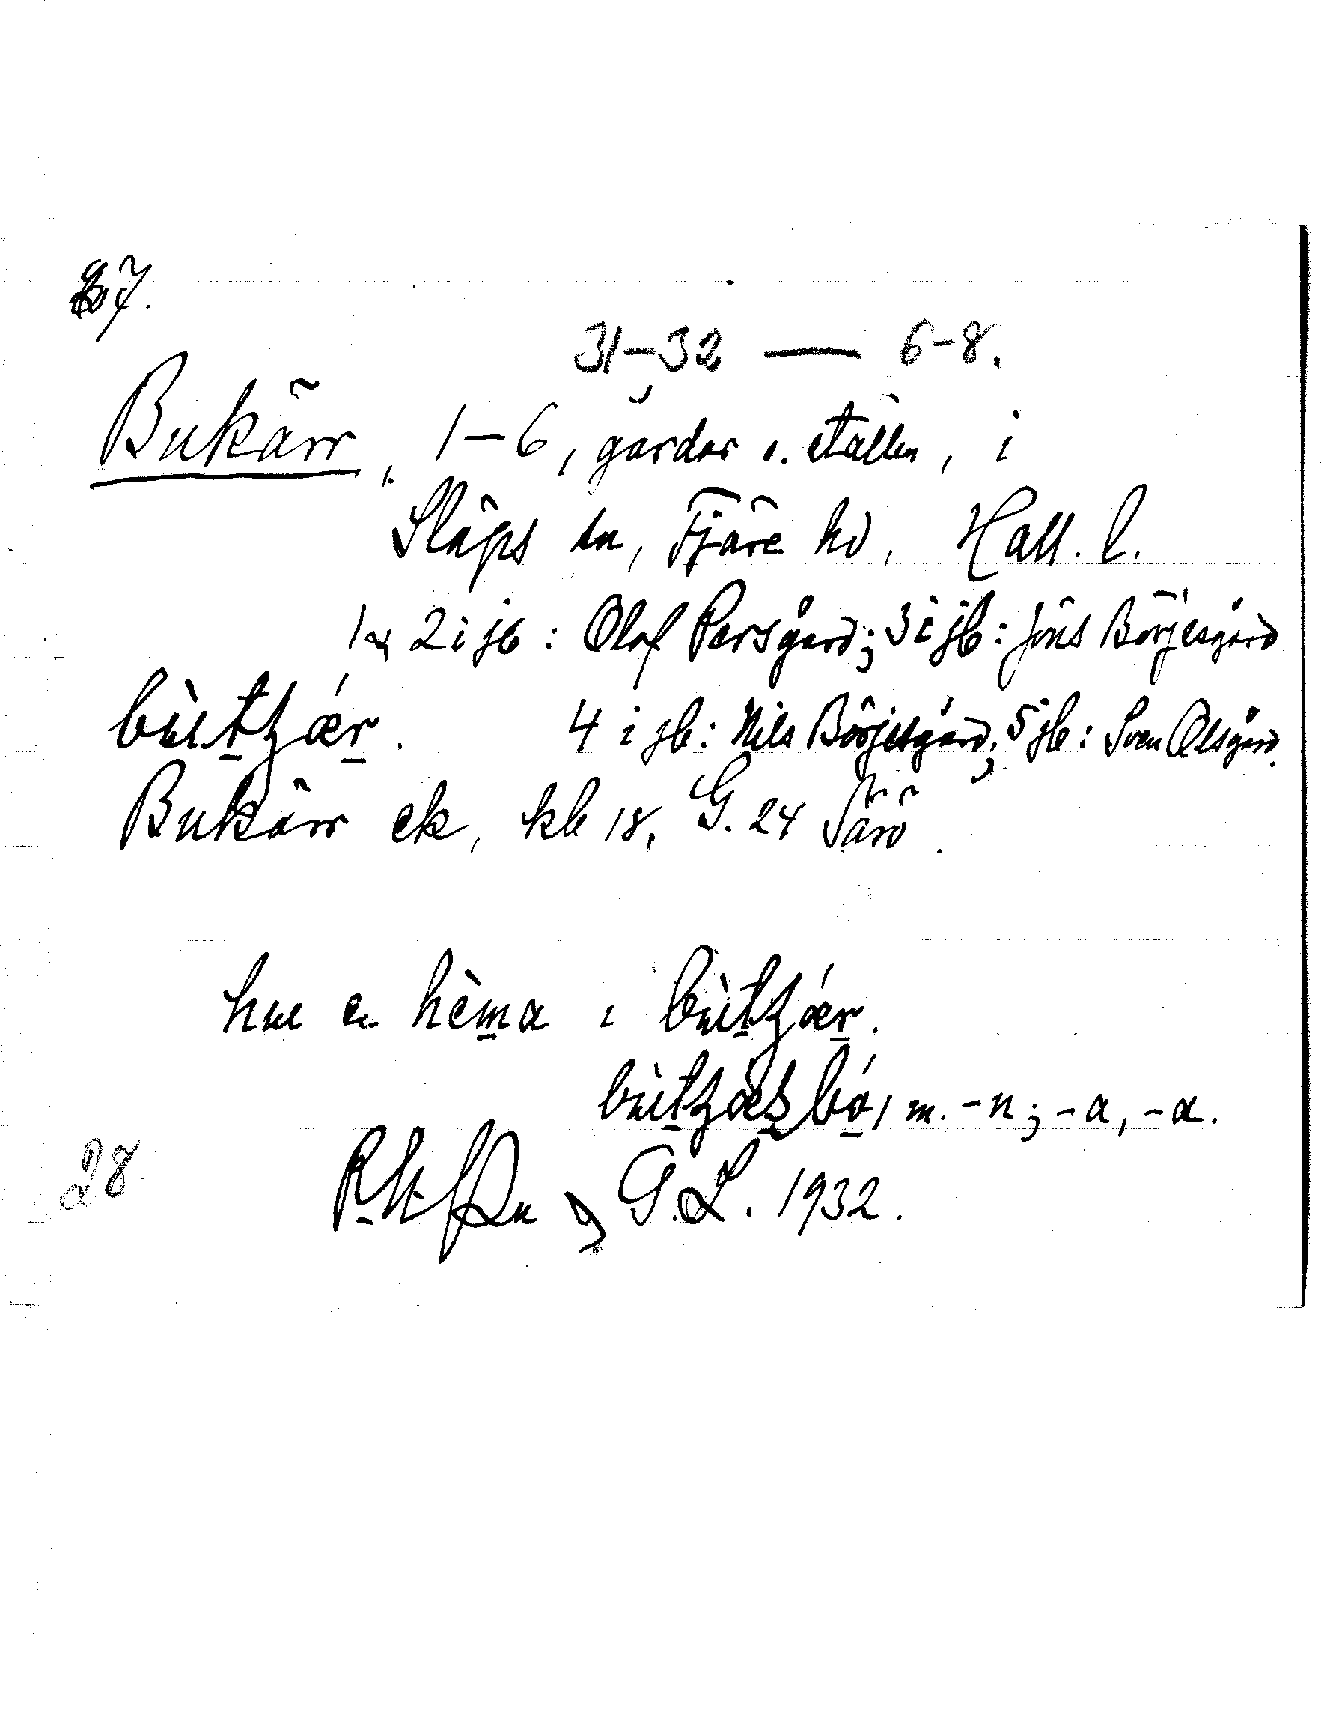 27.
31-32 — 6-8.
Bukärr, 1-6, gårdar o. ställen, i
Släps sn, Fjäre hd, Hall. l.
1 2 i jb: Olof Persgård; 3 i jb: Jöns Börjesgård
bùtʒǽr. 4 i jb: Nils Börjesgård; 5 jb: Sven Olsgård.
Bukärr ek, kb 18, G. 24 Särö.
hu hèma i bùtʒǽr.
m. -n; -a, -a.
28 G.L. 1932.